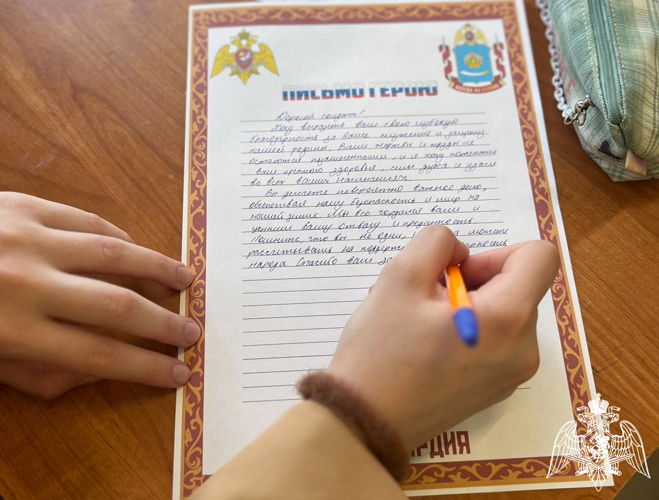 ПИСЬМО ГЕРОЮ
Дорогой солдат!
Хочу выразить Вам свою глубокую
благодарность за Ваше служение и защиту
нашей родины. Ваши жертвы и труды не
остаются незамеченными, и я хочу пожелать
Вам крепкого здоровья, силы духа и удачи
во всех Ваших начинаниях.
Вы делаете невероятно важное дело,
обеспечивая нашу безопасность и мир на
нашей земле. Мы все гордимся Вами и
ценим Вашу отвагу и преданность
Помните, что вы не одни, можете
рассчитывать на поддержк
народа Спасибо Вам за
РДИЯ